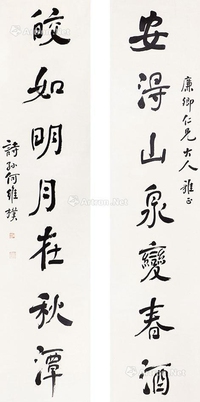 廉卿仁兄大人雅正
安得山泉變春酒
皎如明月在秋潭
詩孫何維樸